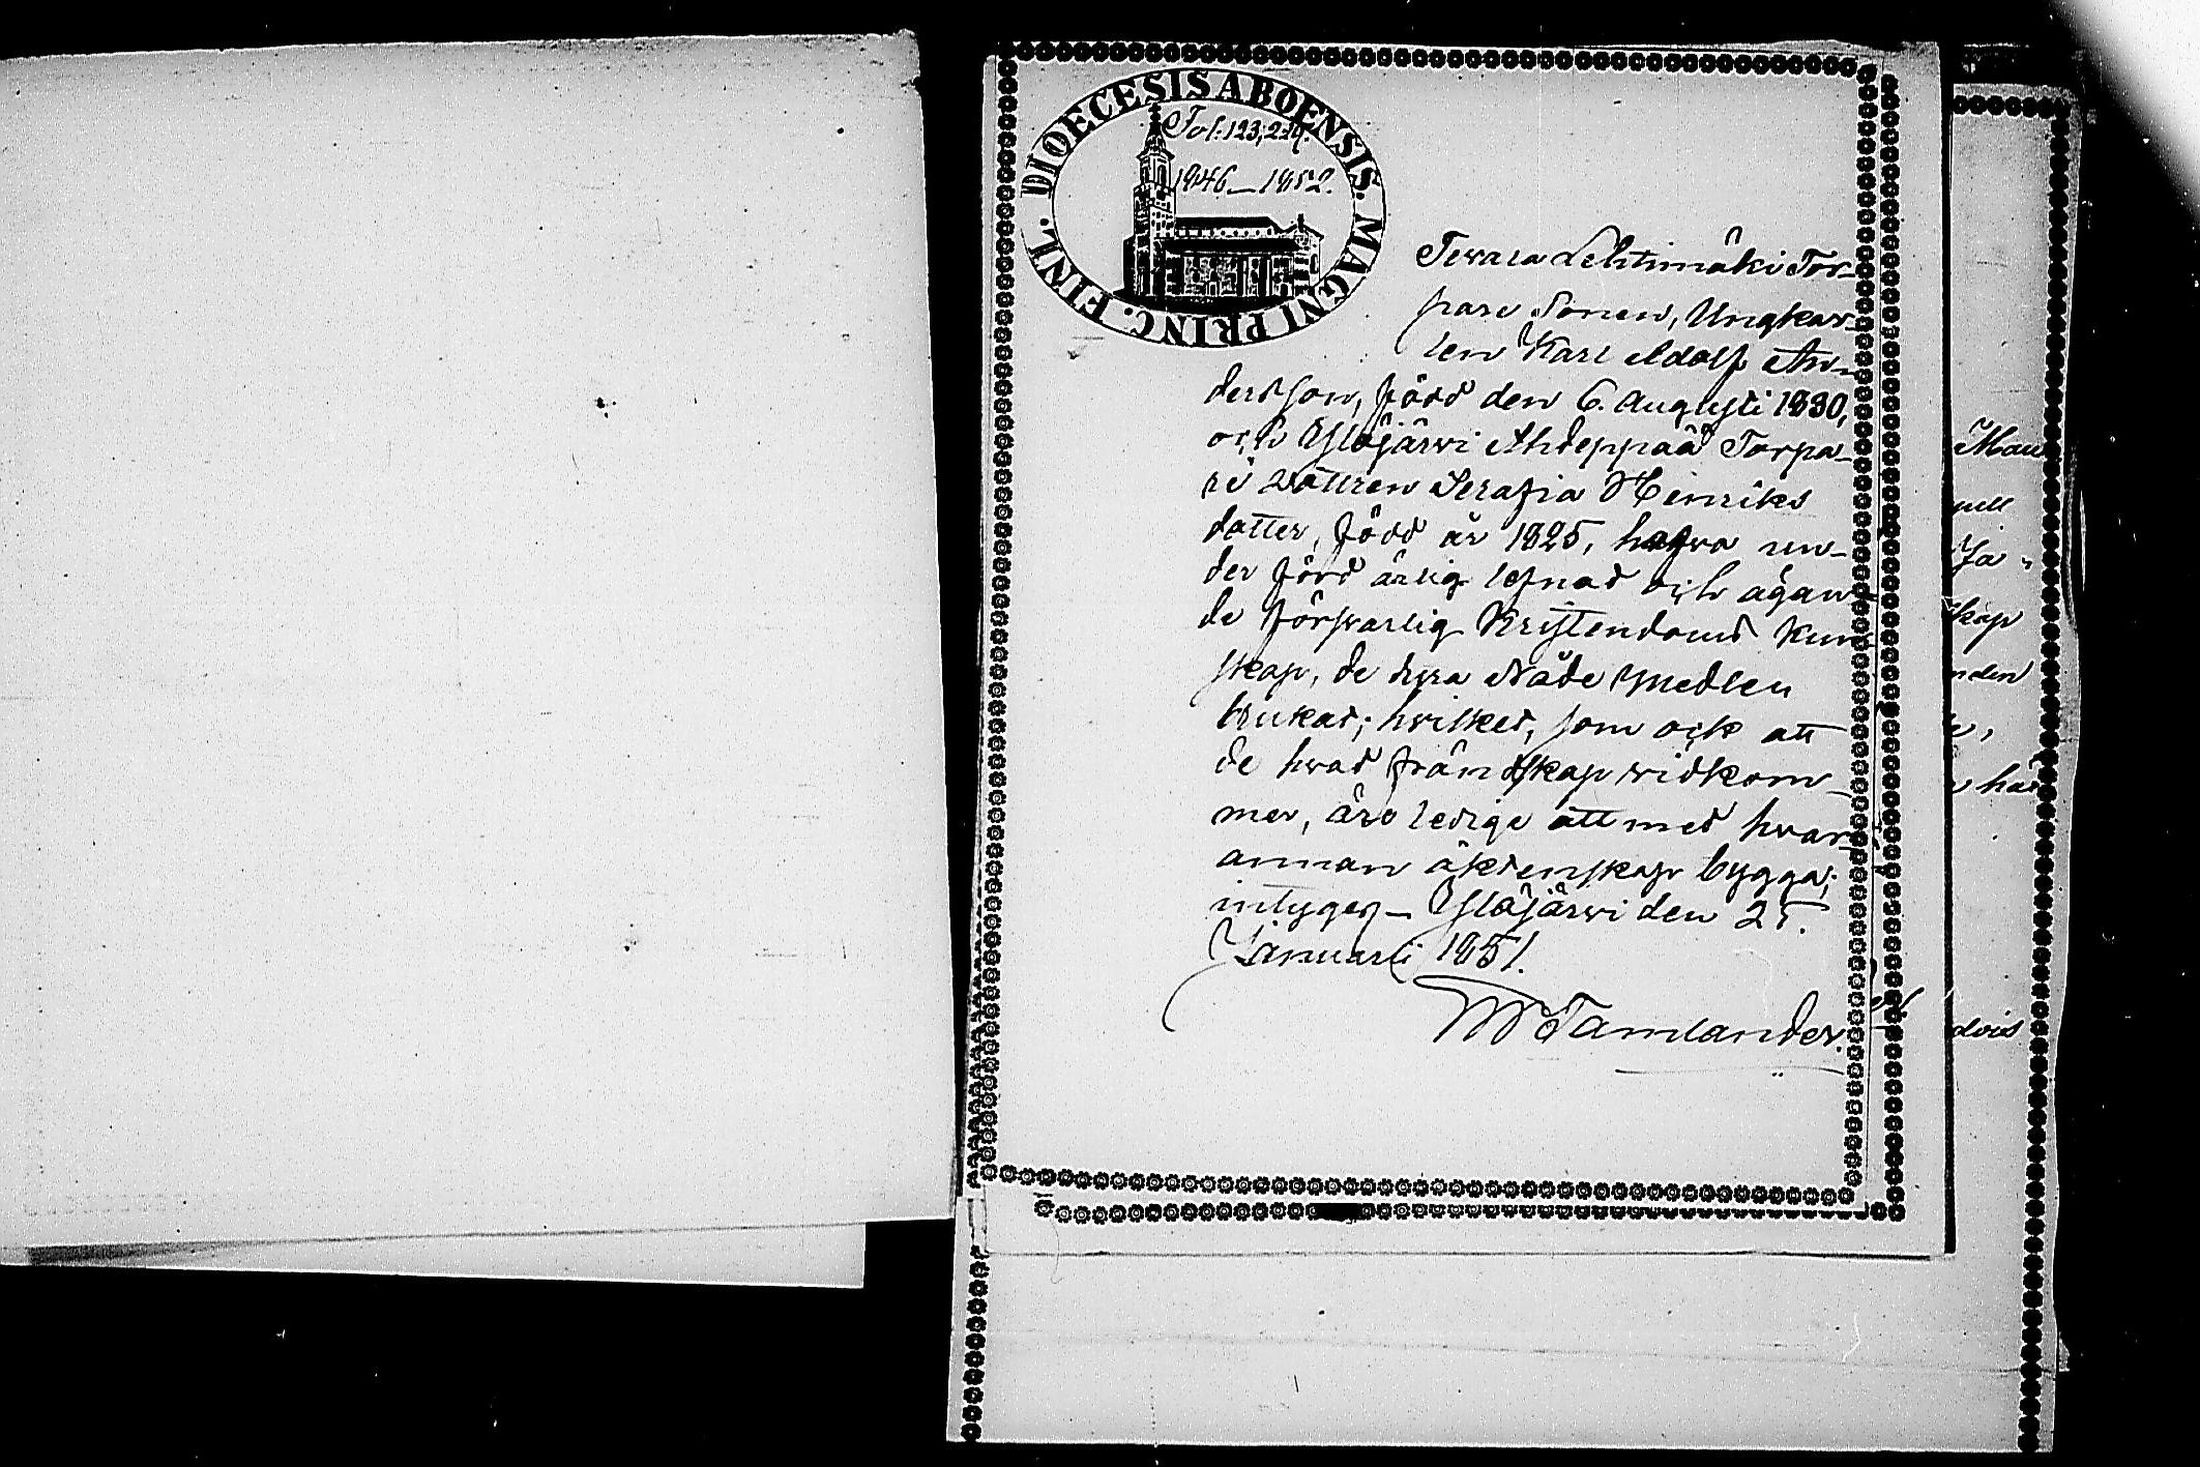 DIOECESIS ABOENSIS. MAGNI PRINC. FINL.
Fol: 123, 219.
1846–1852.
Lehtimäki Tor-
pare Sonen, Ungkar-
len Karl Adolf An-
dersson, född den 6. Augusti 1830,
och Ylöjärvi Ahdeppää Torpa-
re dottren Serafia Henriks
dotter, född år 1825, hafva un-
der förd ärlig lefnad och ägan-
de försvarlig Kristendoms Kun-
skap, de dyra Nåde medlen
brukat; hvilket, som ock att
de hvad frändskap widkom-
mer, äro ledige att med hvar-
annan äktenskap bygga;
intygas– Ylöjärvi den 25.
Januarii 1851.
Tamlander.
Man
nell
Ja-
skap
nden
har
dvis